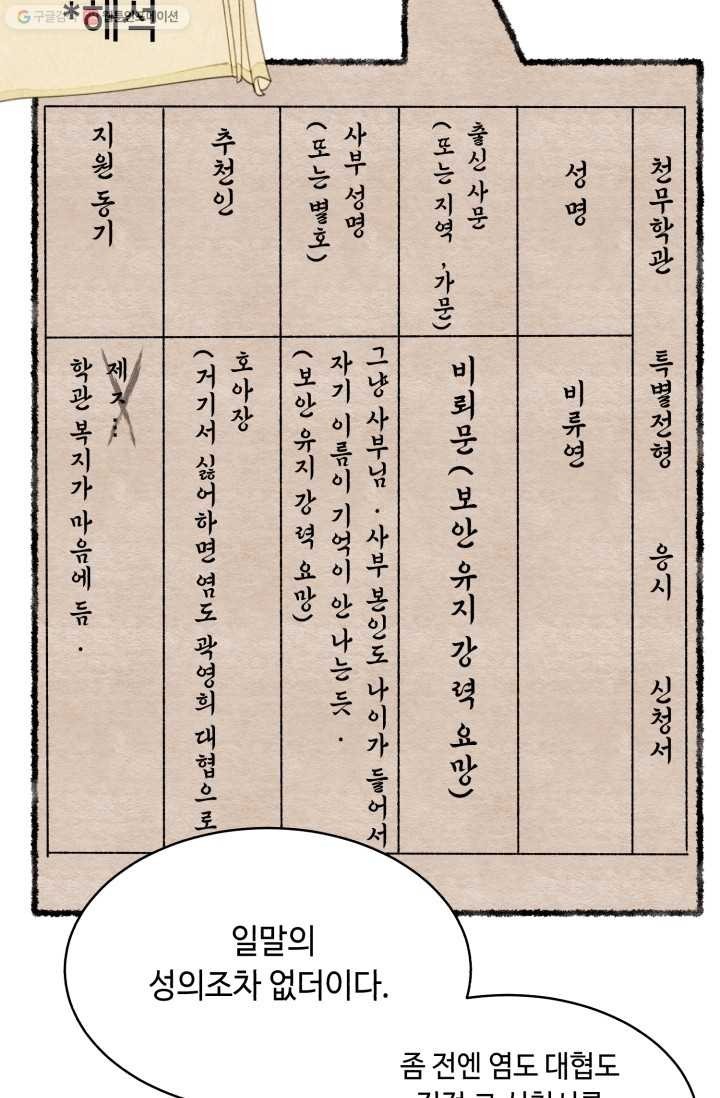 *해석
천무학관 특별전형 응시 신청서
성명
비류연
출신 사문
(또는 지역, 가문)
비뢰문(보안 유지 강력 요망)
사부 성명
(또는 별호)
그냥 사부님. 사부 본인도 나이가 들어서
자기 이름이 기억이 안 나는 듯.
(보안 유지 강력 요망)
추천인
호아장
(거기서 싫어하면 염도 곽영희 대협으로
지원 동기
제ㅈ...
학관 복지가 마음에 듬.
일말의
성의조차 없더이다.
좀 전엔 염도 대협도